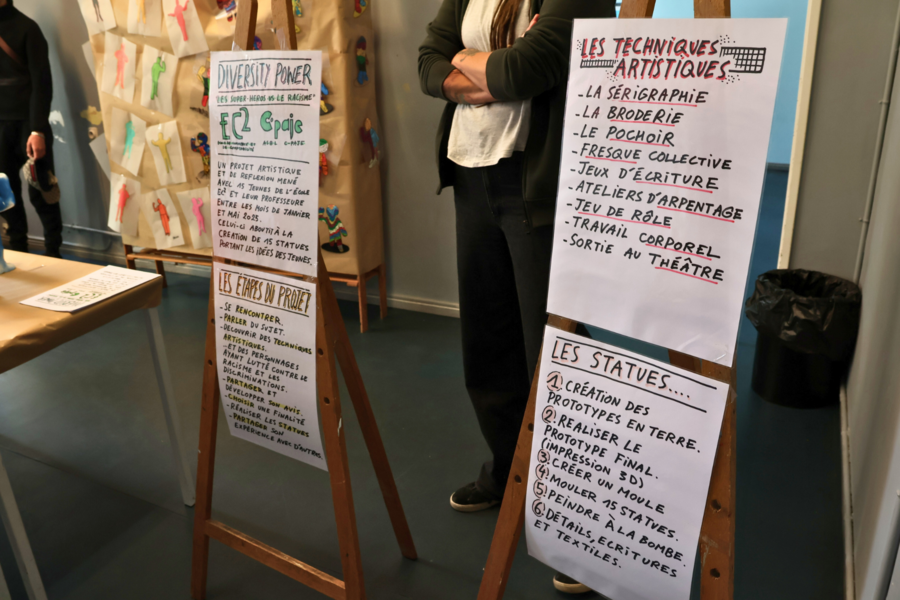 DIVERSITY POWER
"LES SUPER-HÉROS VS LE RACISME"
EC2 Cpaje
UN PROJET ARTISTIQUE
ET DE RÉFLEXION MENÉ
AVEC 15 JEUNES DE L'ÉCOLE
EC2 ET LEUR PROFESSEURE
ENTRE LES MOIS DE JANVIER
ET MAI 2025.
CELUI-CI ABOUTIT À LA
CRÉATION DE 15 STATUES
PORTANT LES IDÉES DES JEUNES.
LES ÉTAPES DU PROJET
- SE RENCONTRER
- PARLER DU SUJET.
- DÉCOUVRIR DES TECHNIQUES
ARTISTIQUES.
- ET DES PERSONNAGES
AYANT LUTTÉ CONTRE LE
RACISME ET LES
DISCRIMINATIONS.
- PARTAGER ET
DÉVELOPPER SON AVIS.
- CHOISIR UNE FINALITÉ
- RÉALISER LES STATUES
- PARTAGER SON
EXPÉRIENCE AVEC D'AUTRES.
LES TECHNIQUES
ARTISTIQUES
- LA SÉRIGRAPHIE
- LA BRODERIE
- LE POCHOIR
- FRESQUE COLLECTIVE
- JEUX D'ÉCRITURE
- ATELIERS D'ARPENTAGE
- JEU DE RÔLE
- TRAVAIL CORPOREL
- SORTIE AU THÉÂTRE
LES STATUES....
1. CRÉATION DES
PROTOTYPES EN TERRE.
2. RÉALISER LE
PROTOTYPE FINAL.
(IMPRESSION 3D)
3. CRÉER UN MOULE
4. MOULER 15 STATUES.
5. PEINDRE À LA BOMBE.
6. DÉTAILS, ÉCRITURES
ET TEXTILES.